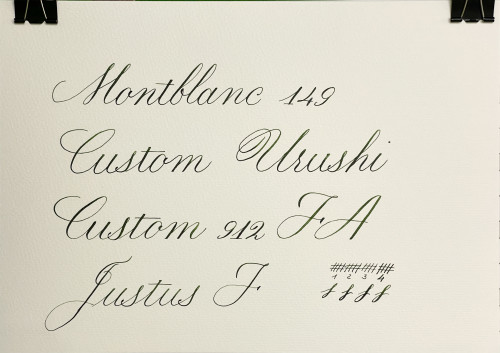 Montblanc 149
Custom Urushi
Custom 912 FA
Justus F
1 2 3 4
f f f f